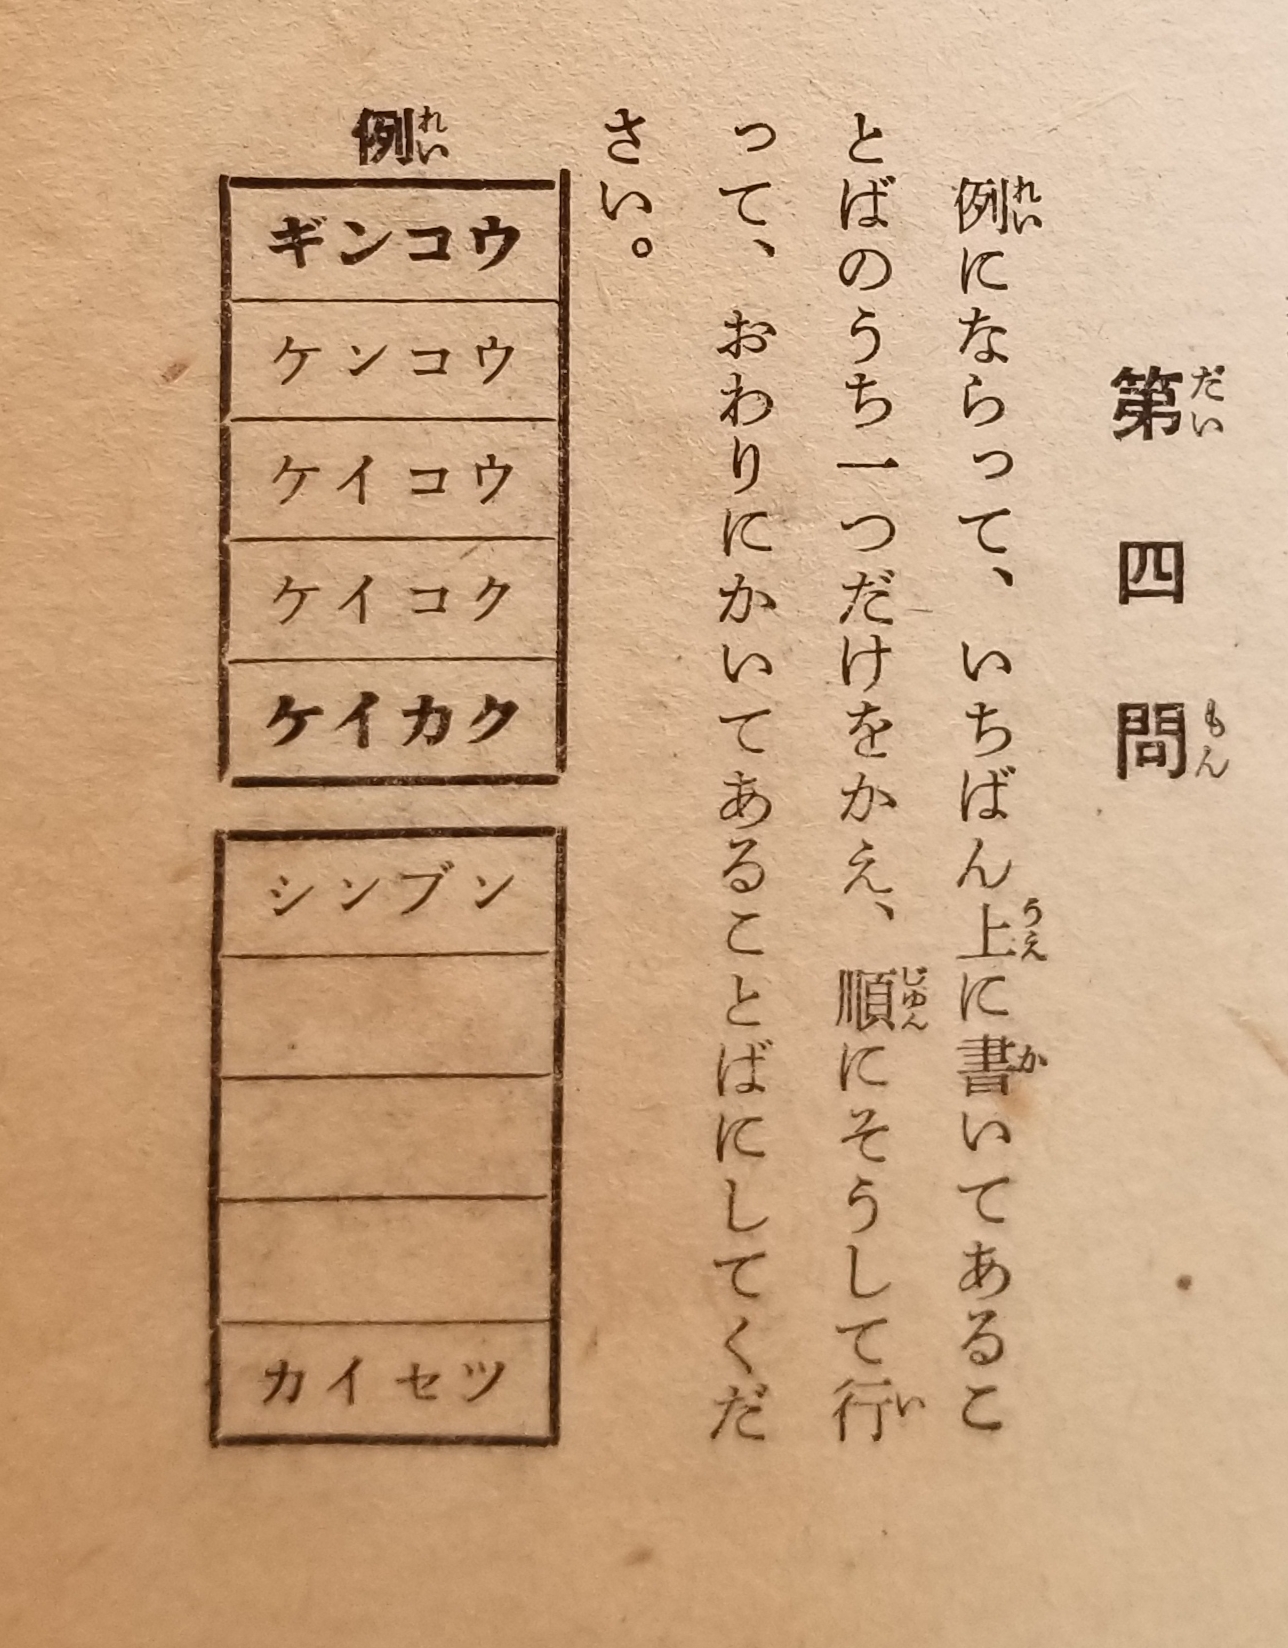 第四問
例にならって、いちばん上に書いてあるこ
とばのうち一つだけをかえ、順にそうして行
って、おわりにかいてあることばにしてくだ
さい。
例
ギンコウ
ケンコウ
ケイコウ
ケイコク
ケイカク
シンブン
カイセツ